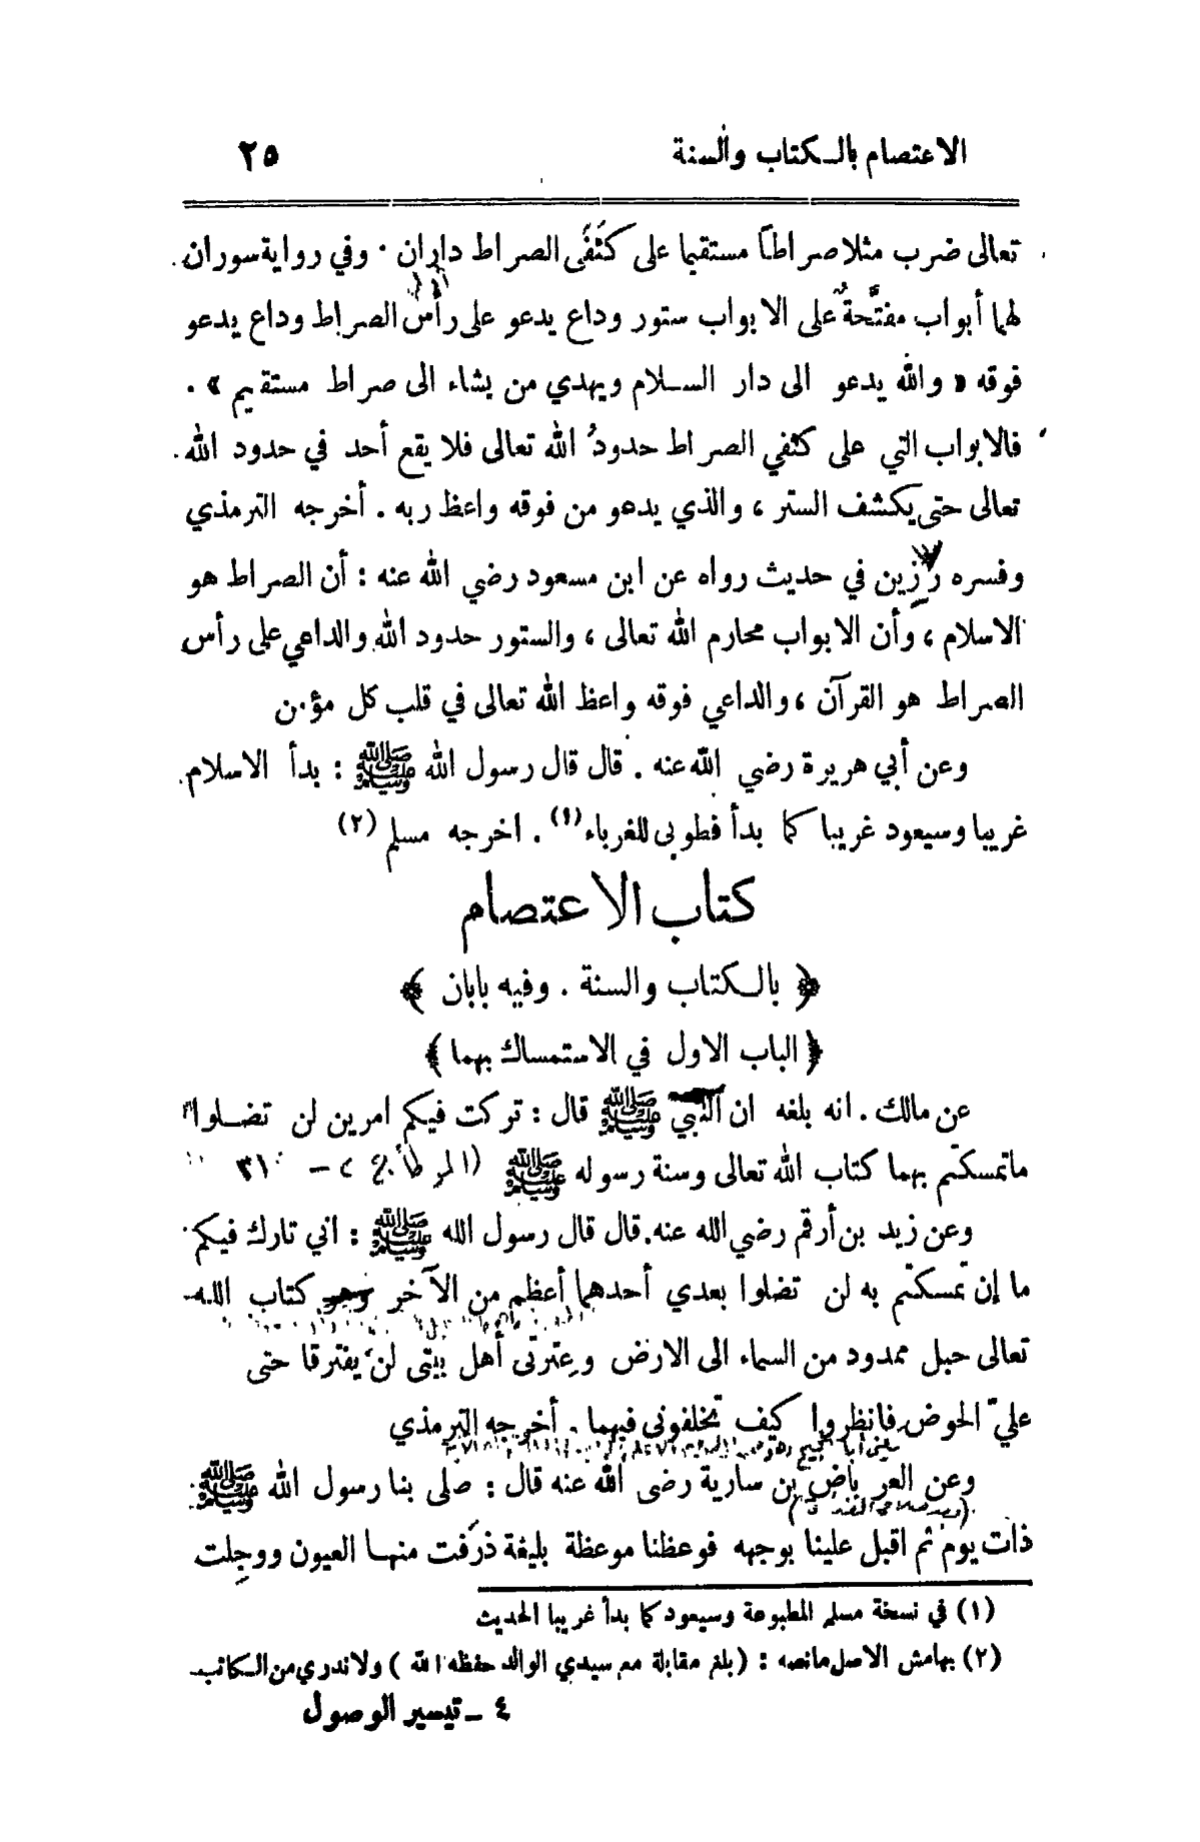 الاعتصام بالكتاب والسنة ٢٥
تعالى ضرب مثلا صراطاً مستقيما على كَنَفَى الصراط داران . وفي رواية سوران
لهما أبواب مفتَّحةٌ على الابواب ستور وداع يدعو على رأس الصراط وداع يدعو
فوقه « والله يدعو الى دار السلام ويهدي من يشاء الى صراط مستقيم » .
فالابواب التي على كنفي الصراط حدودُ الله تعالى فلا يقع أحد في حدود الله
تعالى حتى يكشف الستر ، والذي يدعو من فوقه واعظ ربه . أخرجه الترمذي
وفسره رزين في حديث رواه عن ابن مسعود رضي الله عنه : أن الصراط هو
الاسلام ، وأن الابواب محارم الله تعالى ، والستور حدود الله والداعي على رأس
الصراط هو القرآن ، والداعي فوقه واعظ الله تعالى في قلب كل مؤمن
وعن أبي هريرة رضي الله عنه . قال قال رسول الله ﷺ : بدأ الاسلام
غريبا وسيعود غريبا كما بدأ فطوبى للغرباء (١) . اخرجه مسلم (٢)
كتاب الاعتصام
﴿ بالكتاب والسنة . وفيه بابان ﴾
﴿ الباب الاول في الاستمساك بهما ﴾
عن مالك . انه بلغه ان النبي ﷺ قال : تركت فيكم امرين لن تضلوا
ماتمسكتم بهما كتاب الله تعالى وسنة رسوله ﷺ
وعن زيد بن أرقم رضي الله عنه. قال قال رسول الله ﷺ : اني تارك فيكم
ما إن تمسكتم به لن تضلوا بعدي أحدهما أعظم من الآخر وهو كتاب الله
تعالى حبل ممدود من السماء الى الارض وعِترتى أهل بيتى لن يفترقا حتى
عليّ الحوض فانظروا كيف تخلفونى فيهما . أخرجه الترمذي
وعن العرباض بن سارية رضى الله عنه قال : صلى بنا رسول الله ﷺ
ذات يوم ثم اقبل علينا بوجهه فوعظنا موعظة بليغة ذرَفت منها العيون ووجِلت
(١) في نسخة مسلم المطبوعة وسيعود كما بدأ غريبا الحديث
(٢) بهامش الاصل مانصه : (بلغ مقابلة مع سيدي الوالد حفظه الله ) ولاندري من الكاتب
٤ ــ تيسير الوصول